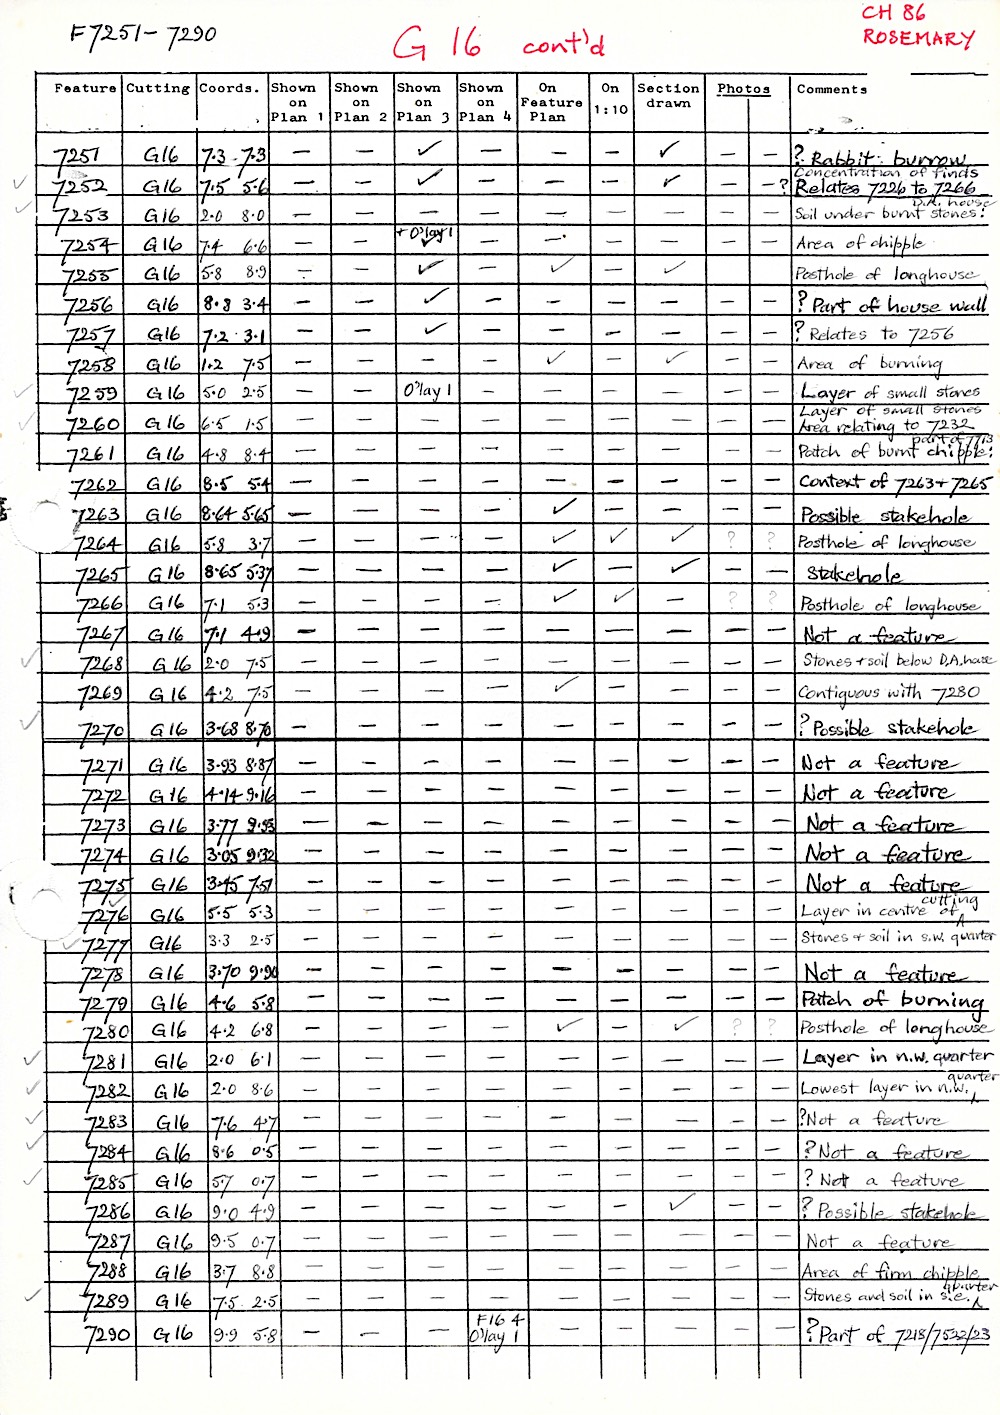 F7251-7290
G 16 cont'd
CH 86
ROSEMARY
Feature Cutting Coords. Shown on Plan 1 Shown on Plan 2 Shown on Plan 3 Shown on Plan 4 On Feature Plan On 1:10 Section drawn Photos Comments
7251 G16 7.3 7.3 — — ✓ — — — ✓ — — ? Rabbit burrow
✓ 7252 G16 7.5 5.6 — — ✓ — — — ✓ — — Concentration of finds ? Relates 7226 to 7266
✓ 7253 G16 2.0 8.0 — — — — — — — — — Soil under burnt stones: D.A. house
7254 G16 7.4 6.6 — — + O'lay 1 ✓ — — — — — — Area of chipple
7255 G16 5.8 8.9 — — ✓ — ✓ — ✓ — — Posthole of longhouse
7256 G16 8.8 3.4 — — ✓ — — — — — — ? Part of house wall
7257 G16 7.2 3.1 — — ✓ — — — — — — ? Relates to 7256
7258 G16 1.2 7.5 — — — — ✓ — ✓ — — Area of burning
✓ 7259 G16 5.0 2.5 — — O'lay 1 — — — — — — Layer of small stones
✓ 7260 G16 6.5 1.5 — — — — — — — — — Layer of small stones Area relating to 7232
✓ 7261 G16 4.8 8.4 — — — — — — — — — Patch of burnt chipple: part of 7713
7262 G16 8.5 5.4 — — — — — — — — — Context of 7263 + 7265
7263 G16 8.64 5.65 — — — — ✓ — — — — Possible stakehole
7264 G16 5.8 3.7 — — — — ✓ ✓ ✓ ? ? Posthole of longhouse
7265 G16 8.65 5.37 — — — — ✓ — ✓ — — Stakehole
7266 G16 7.1 5.3 — — — — ✓ ✓ — ? ? Posthole of longhouse
7267 G16 7.1 4.9 — — — — — — — — — Not a feature
✓ 7268 G16 2.0 7.5 — — — — — — — — — Stones + soil below D.A. house
7269 G16 4.2 7.5 — — — — ✓ — — — — Contiguous with 7280
✓ 7270 G16 3.68 8.70 — — — — — — — — — ? Possible stakehole
7271 G16 3.93 8.87 — — — — — — — — — Not a feature
7272 G16 4.14 9.16 — — — — — — — — — Not a feature
7273 G16 3.77 — — — — — — — — — Not a feature
7274 G16 3.05 9.32 — — — — — — — — — Not a feature
7275 G16 3.45 7.51 — — — — — — — — — Not a feature
✓ 7276 G16 5.5 5.3 — — — — — — — — — Layer in centre of cutting
✓ 7277 G16 3.3 2.5 — — — — — — — — — Stones + soil in s.w. quarter
7278 G16 3.70 9.90 — — — — — — — — — Not a feature
7279 G16 4.6 5.8 — — — — — — — — — Patch of burning
7280 G16 4.2 6.8 — — — — ✓ — ✓ ? ? Posthole of longhouse
✓ 7281 G16 2.0 6.1 — — — — — — — — — Layer in n.w. quarter
✓ 7282 G16 2.0 8.6 — — — — — — — — — Lowest layer in n.w. quarter
✓ 7283 G16 7.6 4.7 — — — — — — — — — ? Not a feature
✓ 7284 G16 8.6 0.5 — — — — — — — — — ? Not a feature
✓ 7285 G16 5.7 0.7 — — — — — — — — — ? Not a feature
7286 G16 9.0 4.9 — — — — — — ✓ — — ? Possible stakehole
7287 G16 9.5 0.7 — — — — — — — — — Not a feature
7288 G16 3.7 8.8 — — — — — — — — — Area of firm chipple
✓ 7289 G16 7.5 2.5 — — — — — — — — — Stones and soil in s.e. quarter
7290 G16 9.9 5.8 — — — F16 4 O'lay 1 — — — — — ? Part of 7218/7522/23